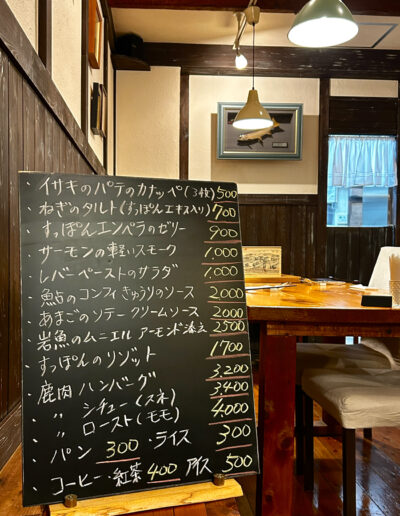 ・イサキのパテのカナッペ(3枚) 500
・ねぎのタルト(すっぽんエキス入り) 700
・すっぽんエンペラのゼリー 900
・サーモンの軽いスモーク 1,000
・レバーペーストのサラダ 1,000
・鮎のコンフィきゅうりのソース 2,000
・あまごのソテークリームソース 2,000
・岩魚のムニエル アーモンド添え 2500
・すっぽんのリゾット 1700
・鹿肉 ハンバーグ 3,200
・〃 シチュー(スネ) 3,400
・〃 ロースト(モモ) 4,000
・パン 300 ・ライス 300
・コーヒー・紅茶 400 アイス 500